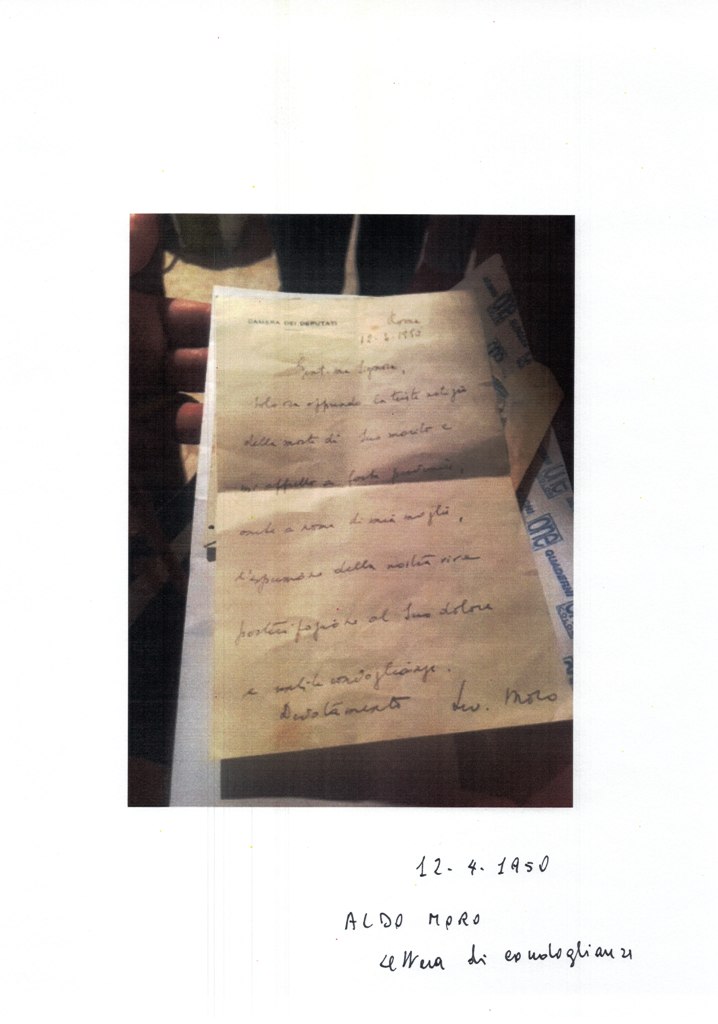 CAMERA DEI DEPUTATI
Roma
12-4-1950
Gent.ma Signora,
Solo ora apprendo la triste notizia
della morte di Suo marito e
mi affretto a farLe pervenire,
anche a nome di mia moglie,
l'espressione della nostra viva
partecipazione al Suo dolore
e sentite condoglianze.
Devotamente
Moro
one
QUADERNI
one
12-4-1950
ALDO MORO
Lettera di condoglianze